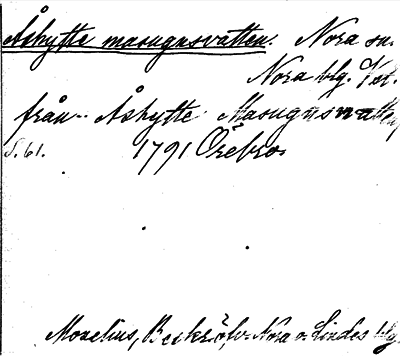 Åshytte masugnsvatten. Nora sn.
Nora blg. Vet.
från Åshytte Masugnsvatten
S. 61. 1791 Örebro
Morelius, Beskr. öfv. Nora o. Lindes blg